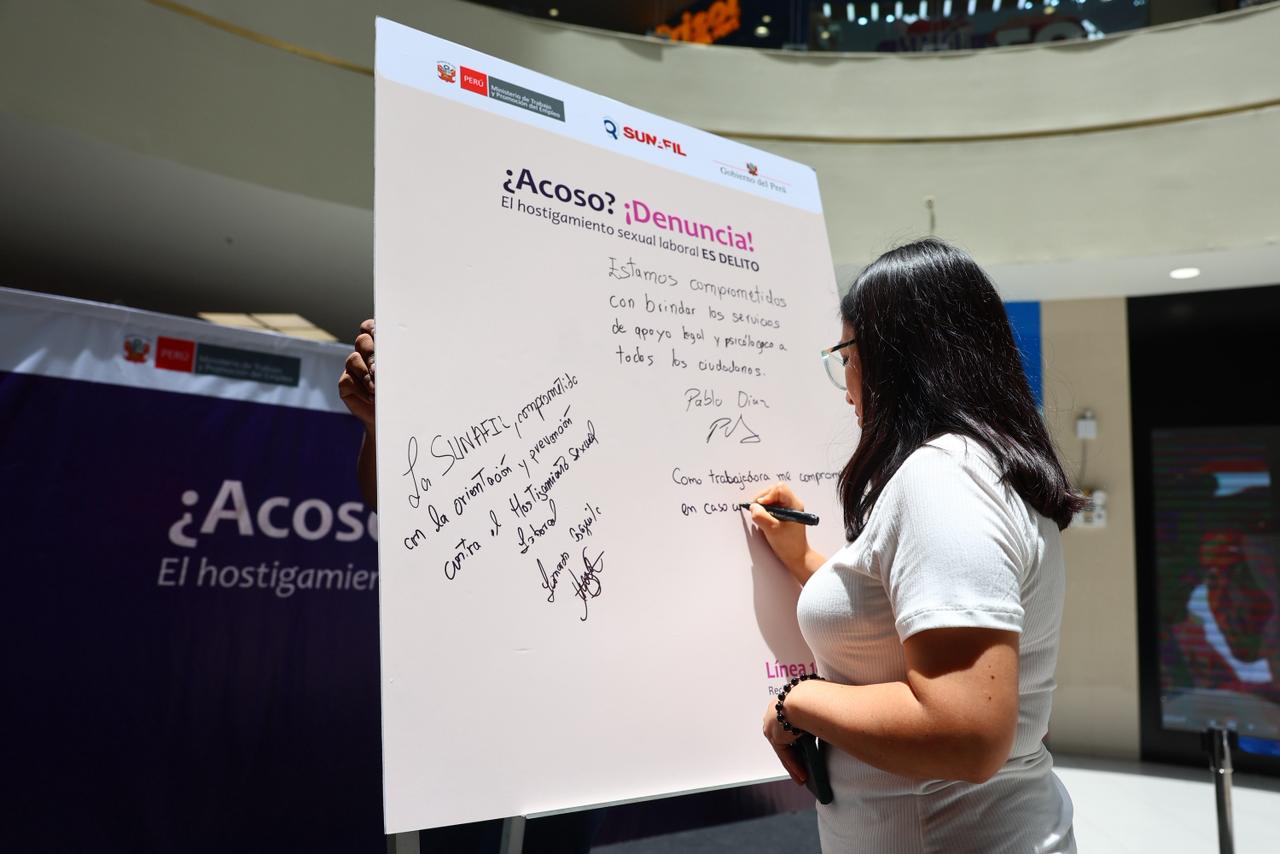 PERÚ
Ministerio de Trabajo
y Promoción del Empleo
SUNAFIL
Gobierno del Perú
¿Acoso? ¡Denuncia!
El hostigamiento sexual laboral ES DELITO
Estamos comprometidos
con brindar los servicios
de apoyo legal y psicológico a
todos los ciudadanos.
Pablo Diaz
La SUNAFIL, comprometido
con la orientación y prevención
contra el Hostigamiento sexual
Laboral
Como trabajadora me comprom
en caso
Línea 1
PERÚ
Ministerio de Trabajo
y Promoción del Empleo
¿Acoso
El hostigamien